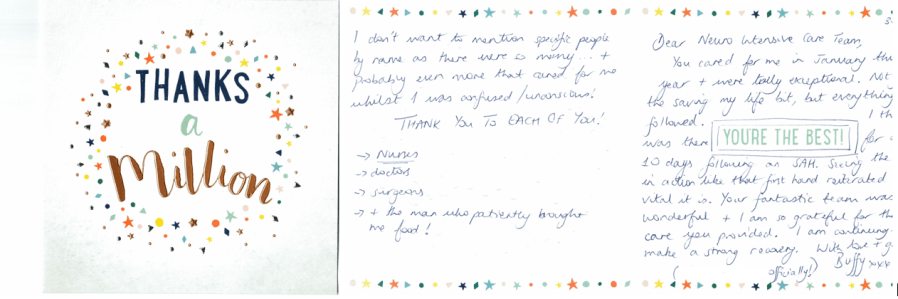 THANKS
a
Million
I don't want to mention specific people
by name as there were so many... +
probably even more that cared for me
whilst I was confused / unconscious!
THANK YOU TO EACH OF YOU!
→ Nurses
→ doctors
→ surgeons
→ + the man who patiently brought
me food!
Dear Neuro Intensive Care Team,
You cared for me in January
year + were totally exceptional. Not
the saving my life bit, but everything
followed. I
was there YOU'RE THE BEST! for
10 days following an SAH. Seeing the
in action like that first hand reiterated
vital it is. Your fantastic team was
wonderful + I am so grateful for
care you provided. I am continuing
make a strong recovery. With love +
(officially!) Buffy xxx